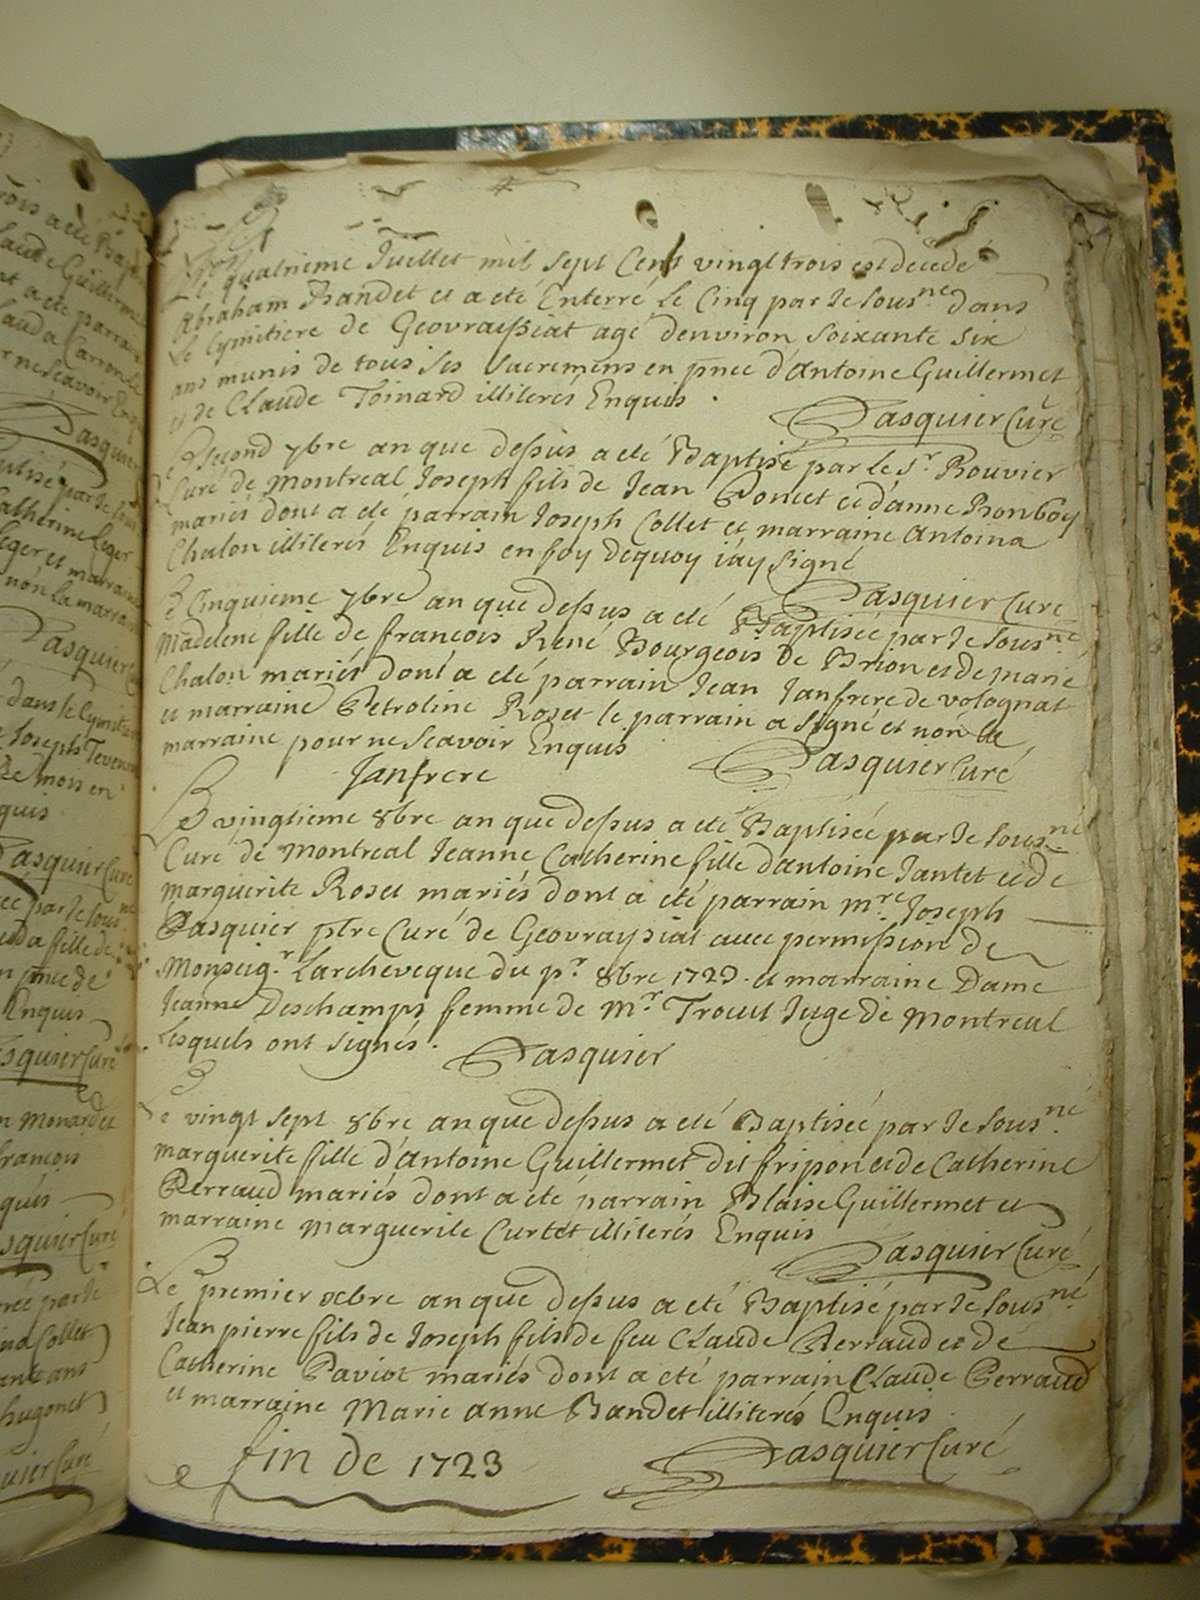 Le quatrieme Juillet mil sept Cent vingt trois est decede
Abraham Bandet et a eté Enterré Le Cinq par Je sous.né dans
Le Cymitiere de Geovraissiat agé denviron soixante six
ans munis de tous ses Sacremens en pnce d'Antoine Guillermet
et de Claude Toinard illiterés Enquis.
Pasquier Curé
Le second 7bre an que dessus a eté Baptisé par le Sr. Bouvier
Curé de Montreal Joseph fils de Jean Poncet et d'anne Bonboy
mariés dont a eté parrain Joseph Collet et marraine Antoina
Chalon illiterés Enquis en foy dequoy j'ay signé
Pasquier Curé
Le Cinquieme 7bre an que dessus a eté Baptisée par Je sous.né
Madelene fille de francois René Bourgeois de Brion et de Marie
Chalon mariés dont a eté parrain Jean Janfrere de volognat
et marraine Petroline Roset le parrain a signé et non la
marraine pour ne scavoir Enquis
Pasquier Curé
Janfrere
Le vingtieme 8bre an que dessus a eté Baptisée par Je sous.né
Curé de Montreal Jeanne Catherine fille d'antoine Jantet et de
Marguerite Roset mariés dont a eté parrain Mre. Joseph
Pasquier ptre Curé de Geovraysiat avec permission de
Monseigr. Larcheveque du pr. 8bre 1723. et marraine Dame
Jeanne Deschamps femme de Mr. Trocut Juge de Montreal
Lesquels ont signés.
Pasquier
Le vingt sept 8bre an que dessus a eté Baptisée par Je sous.né
Marguerite fille d'Antoine Guillermet dit fripon et de Catherine
Perraud mariés dont a eté parrain Blaise Guillermet et
marraine Marguerite Curtet illiterés Enquis
Pasquier Curé
Le premier xbre an que dessus a eté Baptisé par Je sous.né
Jean pierre fils de Joseph fils de feu Claude Perraud et de
Catherine Paviot mariés dont a eté parrain Claude Perraud
et marraine Marie anne Bandet illiterés Enquis
Pasquier Curé
fin de 1723